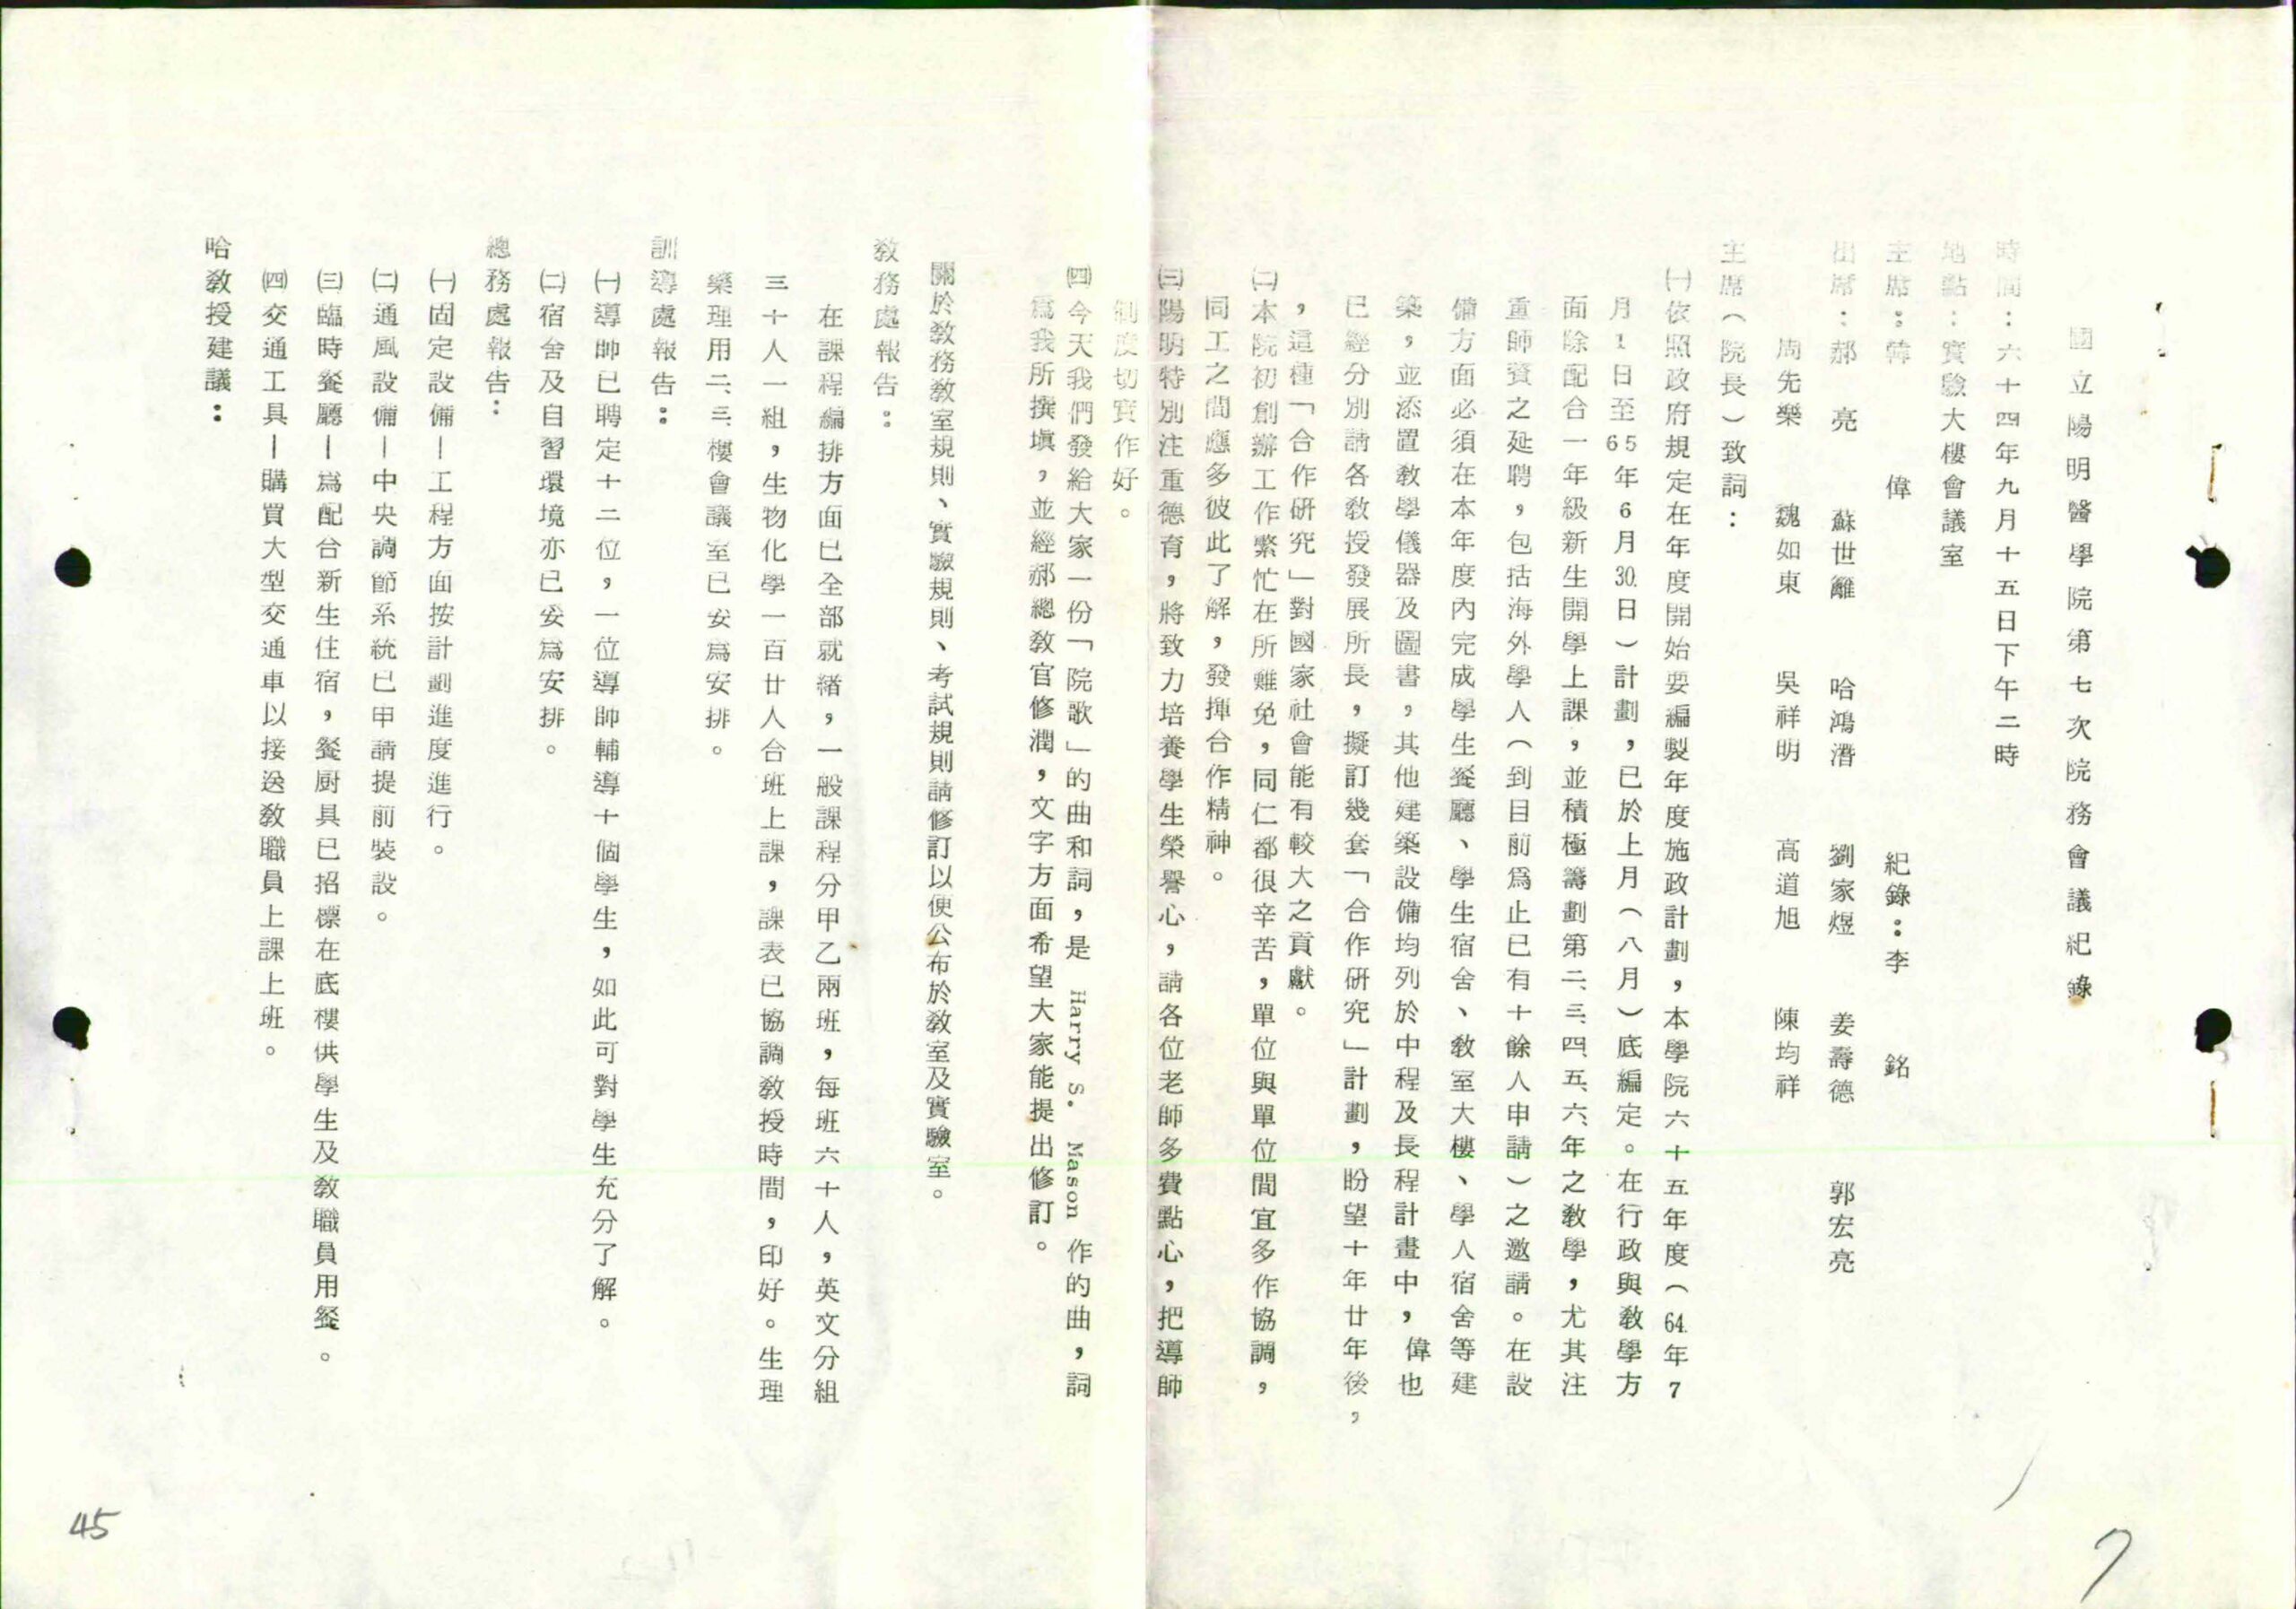 國立陽明醫學院第七次院務會議紀錄
時間：六十四年九月十五日下午二時
地點：實驗大樓會議室
主席：韓　偉　紀錄：李　銘
出席：郝　亮　蘇世籬　哈鴻潛　劉家煜　姜壽德　郭宏亮
周先樂　魏如東　吳祥明　高道旭　陳均祥
主席（院長）致詞：
㈠依照政府規定在年度開始要編製年度施政計劃，本學院六十五年度（64.年7
月1日至65年6月30.日）計劃，已於上月（八月）底編定。在行政與教學方
面除配合一年級新生開學上課，並積極籌劃第二、三、四、五、六、年之教學，尤其注
重師資之延聘，包括海外學人（到目前爲止已有十餘人申請）之邀請。在設
備方面必須在本年度內完成學生餐廳、學生宿舍、教室大樓、學人宿舍等建
築，並添置教學儀器及圖書，其他建築設備均列於中程及長程計畫中，偉也
已經分別請各教授發展所長，擬訂幾套「合作研究」計劃，盼望十年廿年後，
，這種「合作研究」對國家社會能有較大之貢獻。
㈡本院初創辦工作繁忙在所難免，同仁都很辛苦，單位與單位間宜多作協調，
同工之間應多彼此了解，發揮合作精神。
㈢陽明特別注重德育，將致力培養學生榮譽心，請各位老師多費點心，把導師
制度切實作好。
㈣今天我們發給大家一份「院歌」的曲和詞，是 Harry S. Mason 作的曲，詞
爲我所撰塡，並經郝總教官修潤，文字方面希望大家能提出修訂。
關於教務教室規則、實驗規則、考試規則請修訂以便公布於教室及實驗室。
教務處報告：
在課程編排方面已全部就緒，一般課程分甲乙兩班，每班六十人，英文分組
三十人一組，生物化學一百廿人合班上課，課表已協調教授時間，印好。生理
藥理用二、三、樓會議室已妥爲安排。
訓導處報告：
㈠導師已聘定十二位，一位導師輔導十個學生，如此可對學生充分了解。
㈡宿舍及自習環境亦已妥爲安排。
總務處報告：
㈠固定設備—工程方面按計劃進度進行。
㈡通風設備—中央調節系統已申請提前裝設。
㈢臨時餐廳—爲配合新生住宿，餐厨具已招標在底樓供學生及教職員用餐。
㈣交通工具—購買大型交通車以接送教職員上課上班。
哈教授建議：
45
7